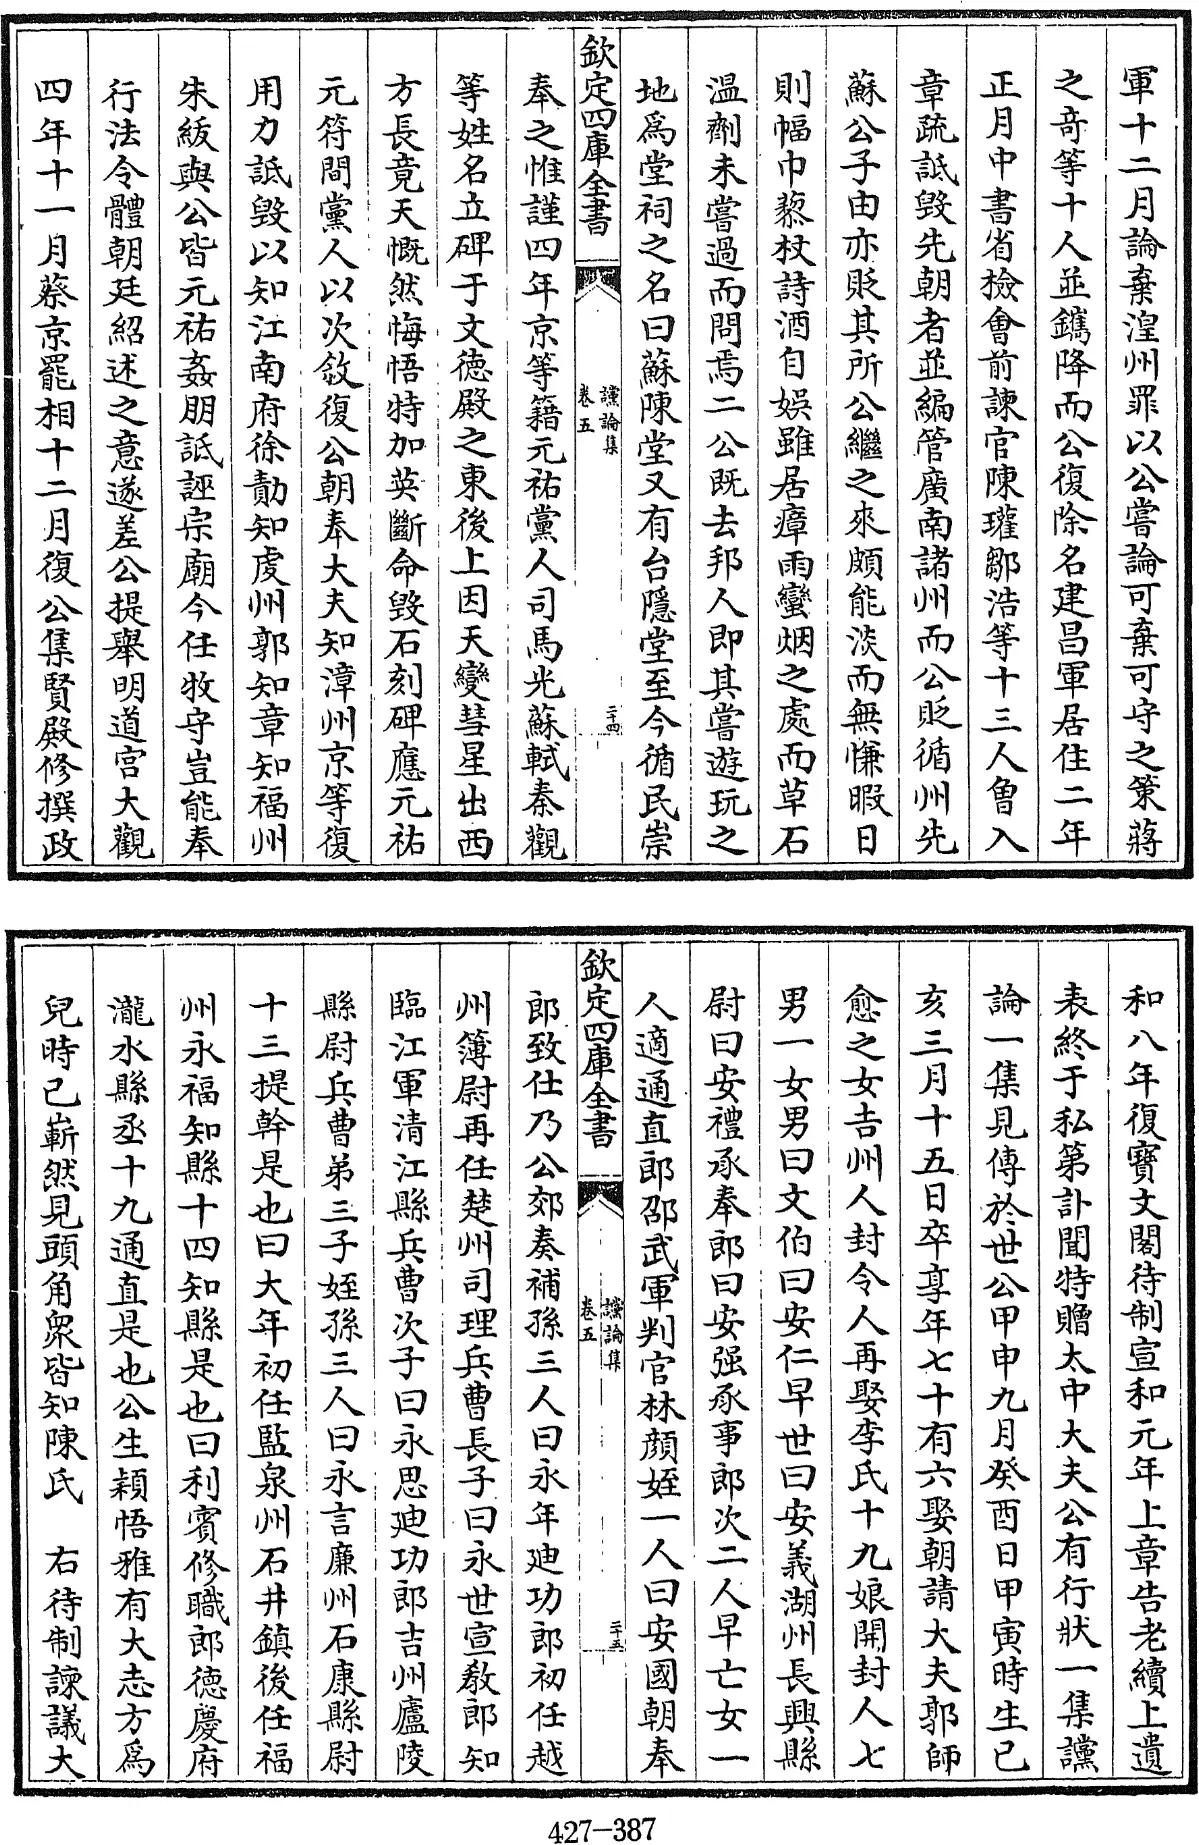 軍十二月論棄湟州罪以公嘗論可棄可守之策蔣
之奇等十人並鐫降而公復除名建昌軍居住二年
正月中書省檢會前諫官陳瓘鄒浩等十三人曾入
章疏詆毀先朝者並編管廣南諸州而公貶循州先
蘇公子由亦貶其所公繼之來頗能淡而無慊暇日
則幅巾藜杖詩酒自娯雖居瘴雨蠻烟之處而草石
温劑未嘗過而問焉二公既去邦人即其嘗遊玩之
地為堂祠之名曰蘇陳堂又有台隱堂至今循民崇
欽定四庫全書
讜論集
卷五
二十四
奉之惟謹四年京等籍元祐黨人司馬光蘇軾秦觀
等姓名立碑于文德殿之東後上因天變彗星出西
方長竟天慨然悔悟特加英斷命毀石刻碑應元祐
元符間黨人以次敘復公朝奉大夫知漳州京等復
用力詆毀以知江南府徐勣知虔州郭知章知福州
朱紱與公皆元祐姦朋詆誣宗廟今任牧守豈能奉
行法令體朝廷紹述之意遂差公提舉明道宫大觀
四年十一月蔡京罷相十二月復公集賢殿修撰政
和八年復寶文閣待制宣和元年上章告老續上遺
表終于私第訃聞特贈太中大夫公有行狀一集讜
論一集見傳於世公甲申九月癸酉日甲寅時生己
亥三月十五日卒享年七十有六娶朝請大夫郭師
愈之女吉州人封令人再娶李氏十九娘開封人七
男一女男曰文伯曰安仁早世曰安義湖州長興縣
尉曰安禮承奉郎曰安强承事郎次二人早亡女一
人適通直郎邵武軍判官林顔姪一人曰安國朝奉
欽定四庫全書
讜論集
卷五
二十五
郎致仕乃公郊奏補孫三人曰永年廸功郎初任越
州簿尉再任楚州司理兵曹長子曰永世宣教郎知
臨江軍清江縣兵曹次子曰永思廸功郎吉州廬陵
縣尉兵曹弟三子姪孫三人曰永言廉州石康縣尉
十三提幹是也曰大年初任監泉州石井鎮後任福
州永福知縣十四知縣是也曰利賓修職郎德慶府
瀧水縣丞十九通直是也公生穎悟雅有大志方為
兒時已嶄然見頭角衆皆知陳氏 右待制諫議大
427-387